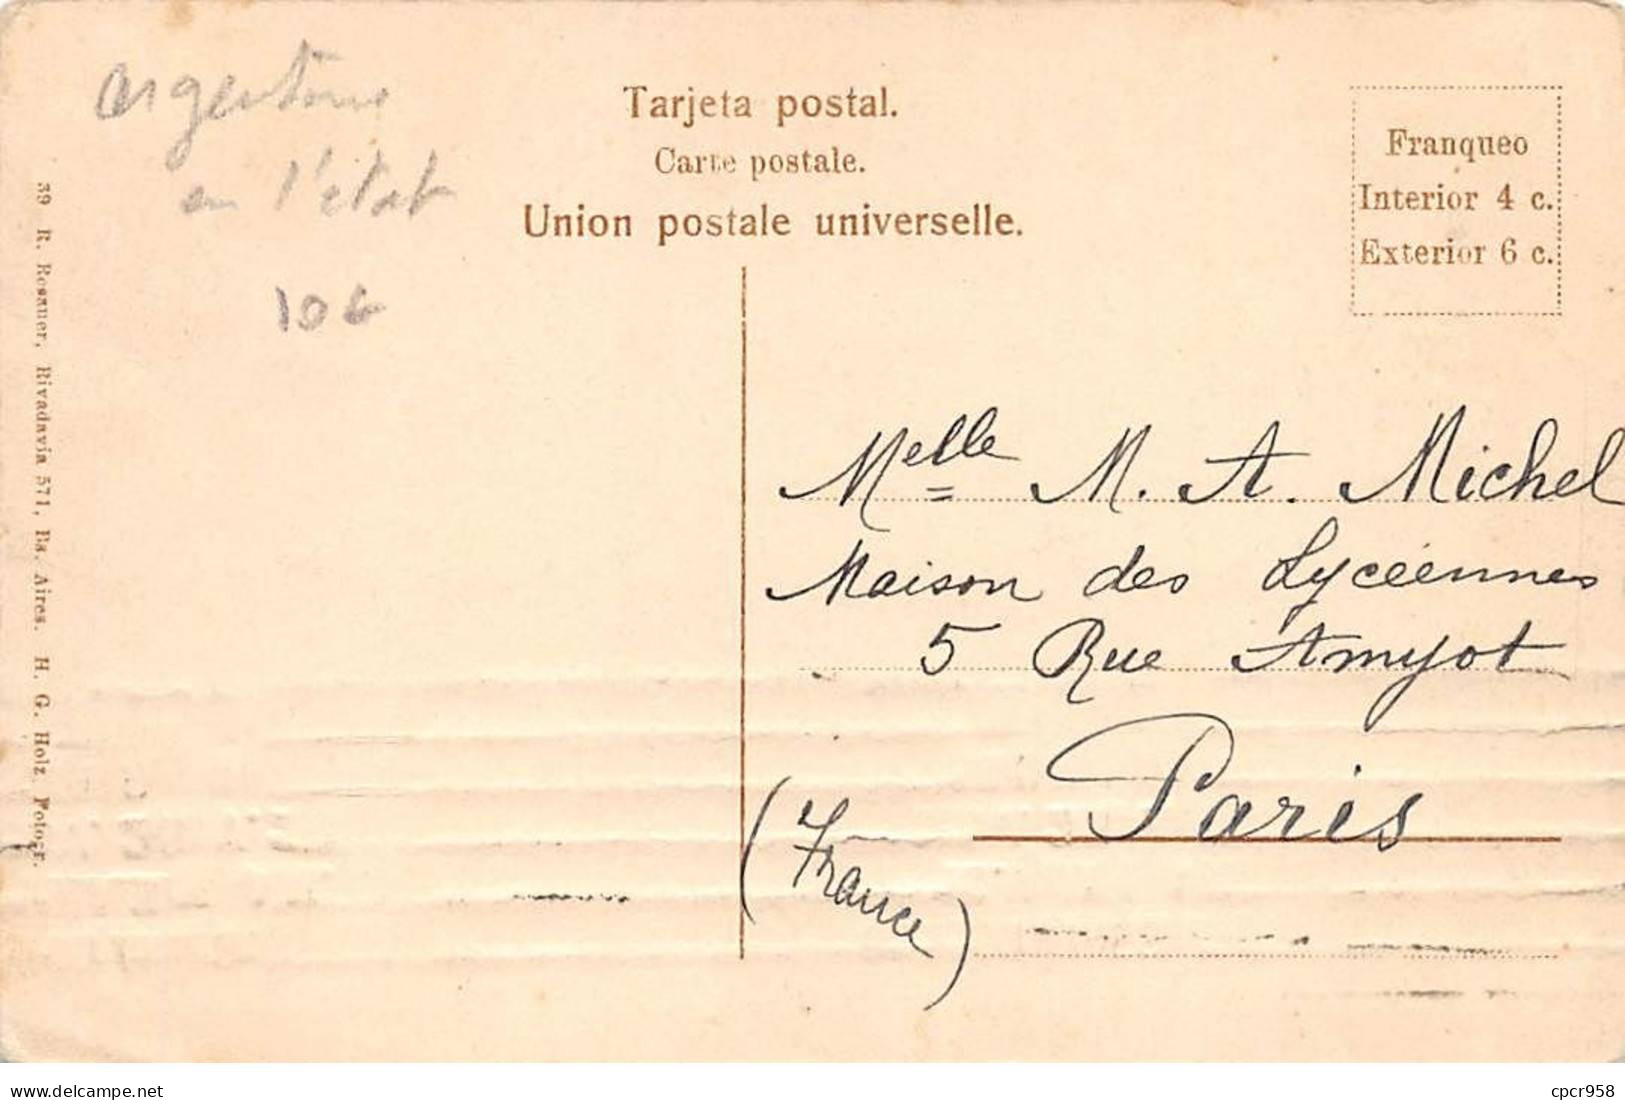 Argentine
en l'état
10€
Tarjeta postal.
Carte postale.
Union postale universelle.
Franqueo
Interior 4 c.
Exterior 6 c.
39 R. Rosauer, Rivadavia 571, Bs. Aires. H. G. Holz Fotogr.
Melle M. A. Michel
Maison des Lycéennes
5 Rue Amyot
Paris
(France)
www.delcampe.net
cpcr958